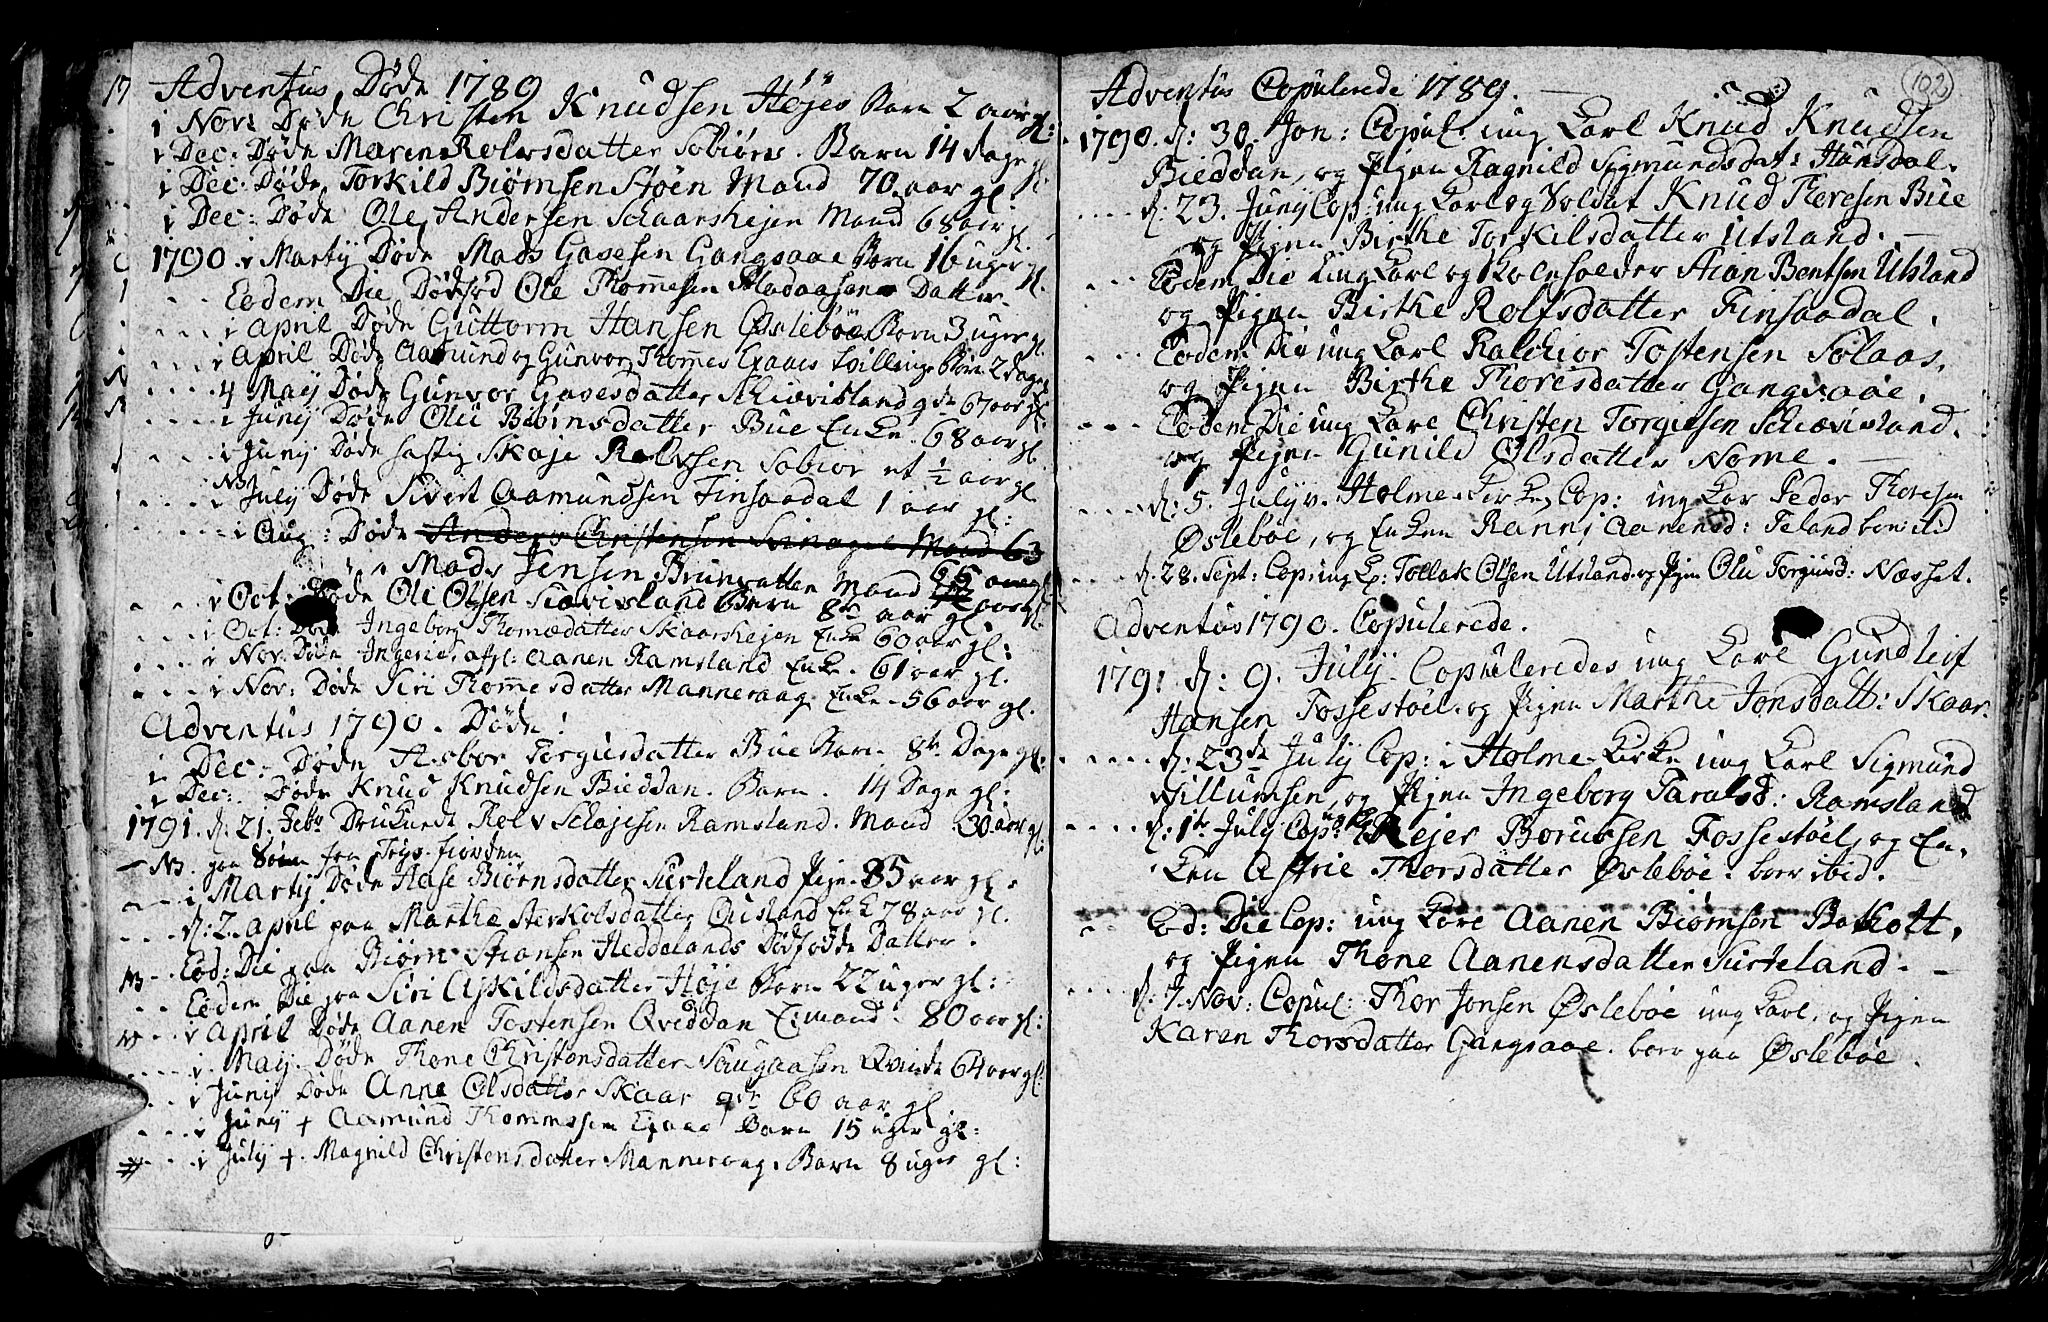 Adventus Døde 1789
i Nov: Døde Christen Knudsen Højes Barn 2 aar gl:
i Dec: Døde Maren Rolvsdatter Sobiørs. Barn 14 dage gl:
i Dec: Døde Torkild Biørnsen Støen Mand 70 aar gl.
i Dec: Døde Ole Andersen Schaarshejen Mand 68 aar gl.
1790. i Martij Døde Mads Gavesen Gangsaae Barn 16 uger gl.
Eodem Die Dødfød Ole Thommesen Datter.
i April Døde Guttorm Hansen Øslebøe Barn 3 uger gl.
i April Døde Aamund og Gunvor Thommes Eraaes tvillinge Børn 2 dage
4 Maij Døde Gunvor Gavesdatter Schiævisland 67 aar gl:
i Junij Døde Olu Biørnsdatter Bue Enke. 68 aar gl.
i Junij Døde hastig Skaje Rolvsen Sobiør et 1/2 aar gl
NB
i Julij Døde Sivert Aamundsen Finsaadal 1 aar gl:
i Aug: Døde Anders Christensen Mand 63
Mads Jensen Mand
i Oct: Døde Ole Olsen Schiævisland Barn 8te aar gl.
i Oct: Døde Ingeborg Thomædatter Skaarshejen Enke 60 aar gl:
i Nov. Døde Ingerie, afgl: Aanen Ramsland Enke. 61 aar gl.
i Nov: Døde Siri Thommesdatter Manneraag Enke. 56 aar gl.
Adventus 1790. Døde:
i Dec: Døde Asbor Torgusdatter Bue Barn 8te Dage gl:
i Dec: Døde Knud Knudsen Bieddan. Barn. 14 Dage gl:
1791. d: 21. Febr Druknede Rolv Schajesen Ramsland. Mand 30 aar gl:
NB. paa Søen
i Martij Døde Aase Biørnsdatter Surteland Pige 85 aar gl.
d: 2. April paa Marthe Sterkolsdatter Ousland Enke 78 aar gl.
NB Eod: Die paa Biørn Stiansen Heddelands Dødfødte Datter.
Eodem Die paa Siri Askildsdatter Høje Barn 22 uger gl:
i April Døde Aanen Tostensen Qveddan Eimand. 80 aar gl:
i Maij. Døde Thone Christensdatter Schugaasen Qvinde 64 aar gl:
i Junij Døde Anne Olsdatter Skaar gde 60 aar gl.
i Junij + Aamund Thommesen Eraae Barn 15 uger gl:
i Julij +. Magnild Christensdatter Manneraag. Barn 8 uger gl:
102
Adventus Copulerede 1789.
1790. d: 30. Jan: Copul: ung Karl Knud Knudsen
Bieddan, og Pigen Ragnild Sigmundsdat: Hønsdal.
d: 23. Junij Cop: ung Karl og Soldat Knud Thoresen Bue
og Pigen Birthe Torkilsdatter Utsland.
Eodem Die ung Karl og Stian Bentsen Utsland
og Pigen Birthe Rolfsdatter Finsaadal.
Eodem Die ung Karl Ralchior Tostensen Solaas,
og Pigen Birthe Thoresdatter Gangsaae.
Eodem Die ung Karl Christen Torgiesen Schiævisland.
og Pigen Gunild Olsdatter Nome.
d: 5. Julij v. Holme Kirke, Cop: ung Kar Peder Thoresen
Øslebøe, og Enken Ranni Aanensd: Teland boer ibid
d. 28. Sept: Cop: ung K: Tollak Olsen Utsland og Pigen Olu Torgiusd: Næsset.
Adventus 1790. Copulerede.
1791 d: 9. Julij. Copuleredes ung Karl Gundleif
Hansen Fossestøel. og Pigen Marthe Jonsdatt: Skaar.
d: 23de Julij Cop: i Holme Kirke ung Karl Sigmund
Villumsen, og Pigen Ingeborg Taralsd: Ramsland
d: 1te July Cop: Rejer Borufsen Fossestøel, og En-
ken Astrie Thorsdatter Øslebøe. boer ibid.
Eod: Die Cop: ung Karl Aanen Biørnsen Bokott,
og Pigen Thone Aanensdatter Surteland.
d. 7. Nov: Copul: Thor Jonsen Øslebøe ung Karl, og Pigen
Karen Thorsdatter Gangsaae. boer paa Øslebøe.